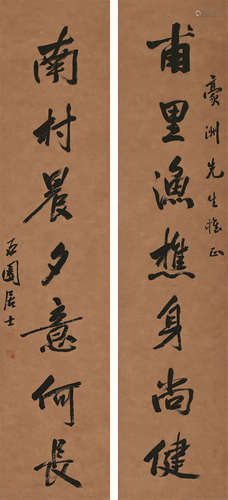 豪洲先生雅正
甫里漁樵身尚健
南村晨夕意何長
石園居士